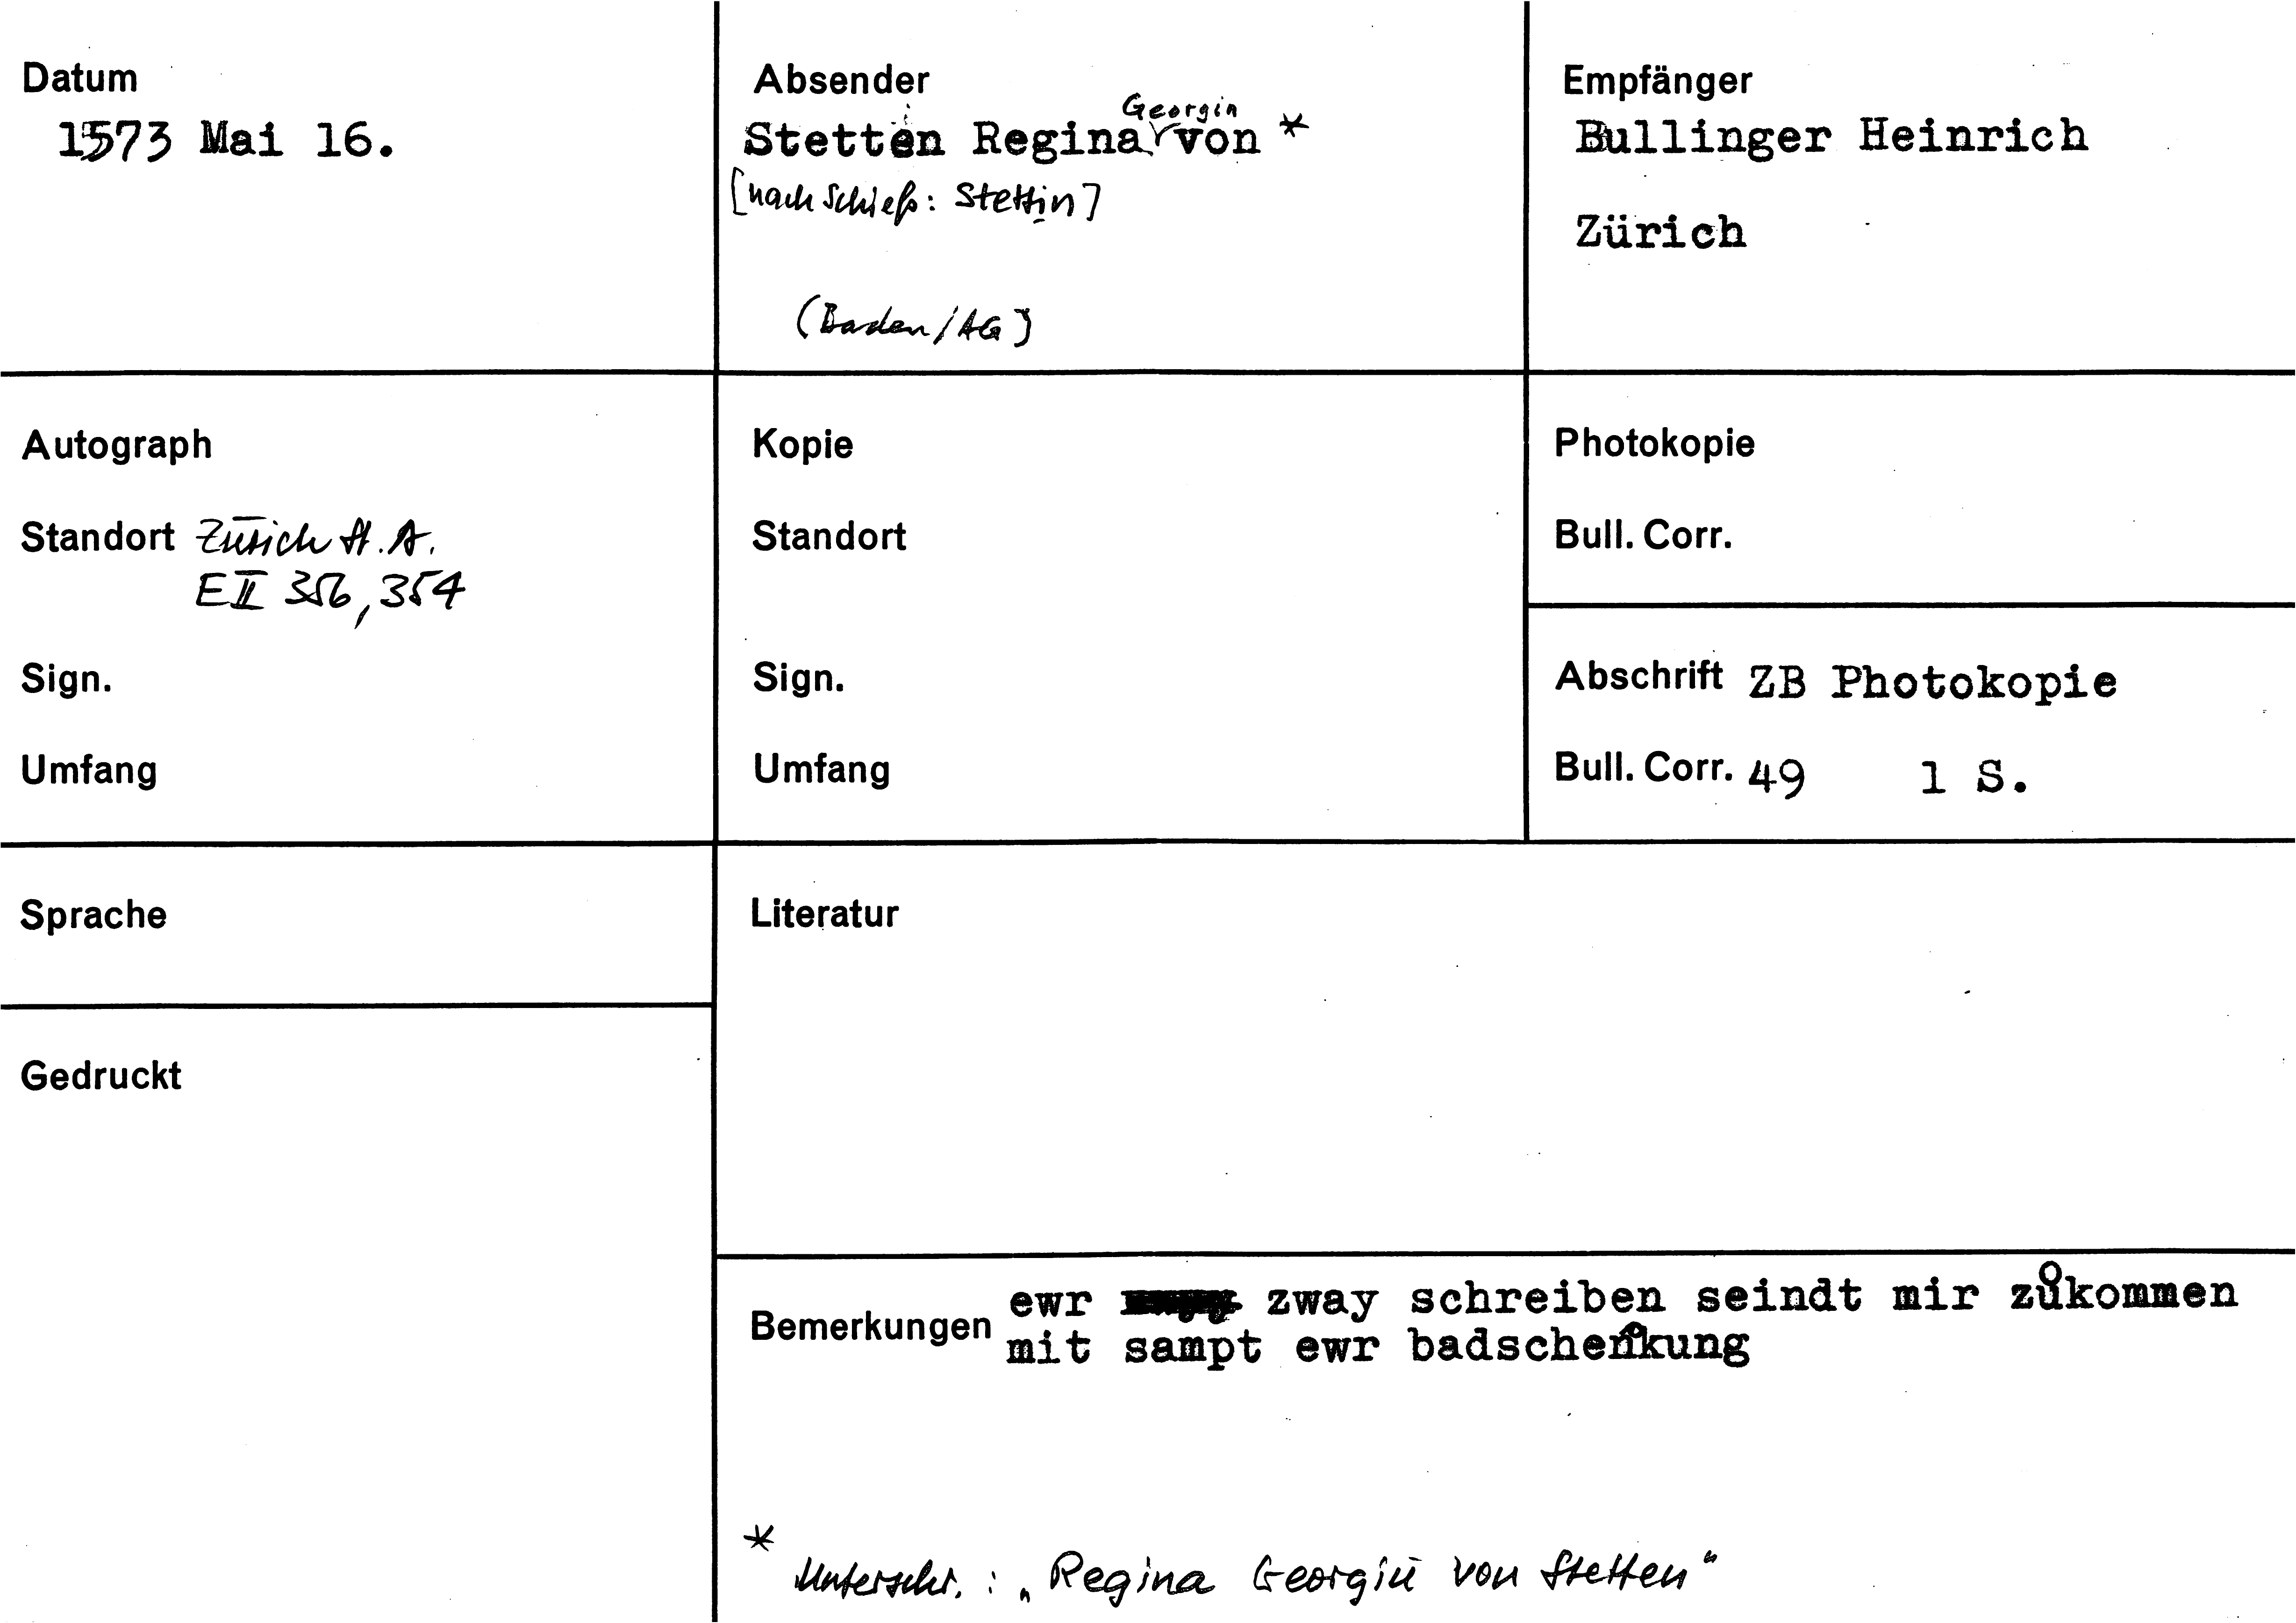 Datum
1573 Mai 16.
Absender
Georgin
Stetten Regina von *
[nach Schieß: Stettin]
(Baden/AG)
Empfänger
Bullinger Heinrich
Zürich
Autograph
Standort Zürich St.A.
E II 356, 354
Sign.
Umfang
Kopie
Standort
Sign.
Umfang
Photokopie
Bull. Corr.
Abschrift ZB Photokopie
Bull. Corr. 49 1 S.
Sprache
Gedruckt
Literatur
Bemerkungen
ewr zway schreiben seindt mir zůkommen
mit sampt ewr badschenkung
* Unterschr.: „Regina Georgin von Stetten"